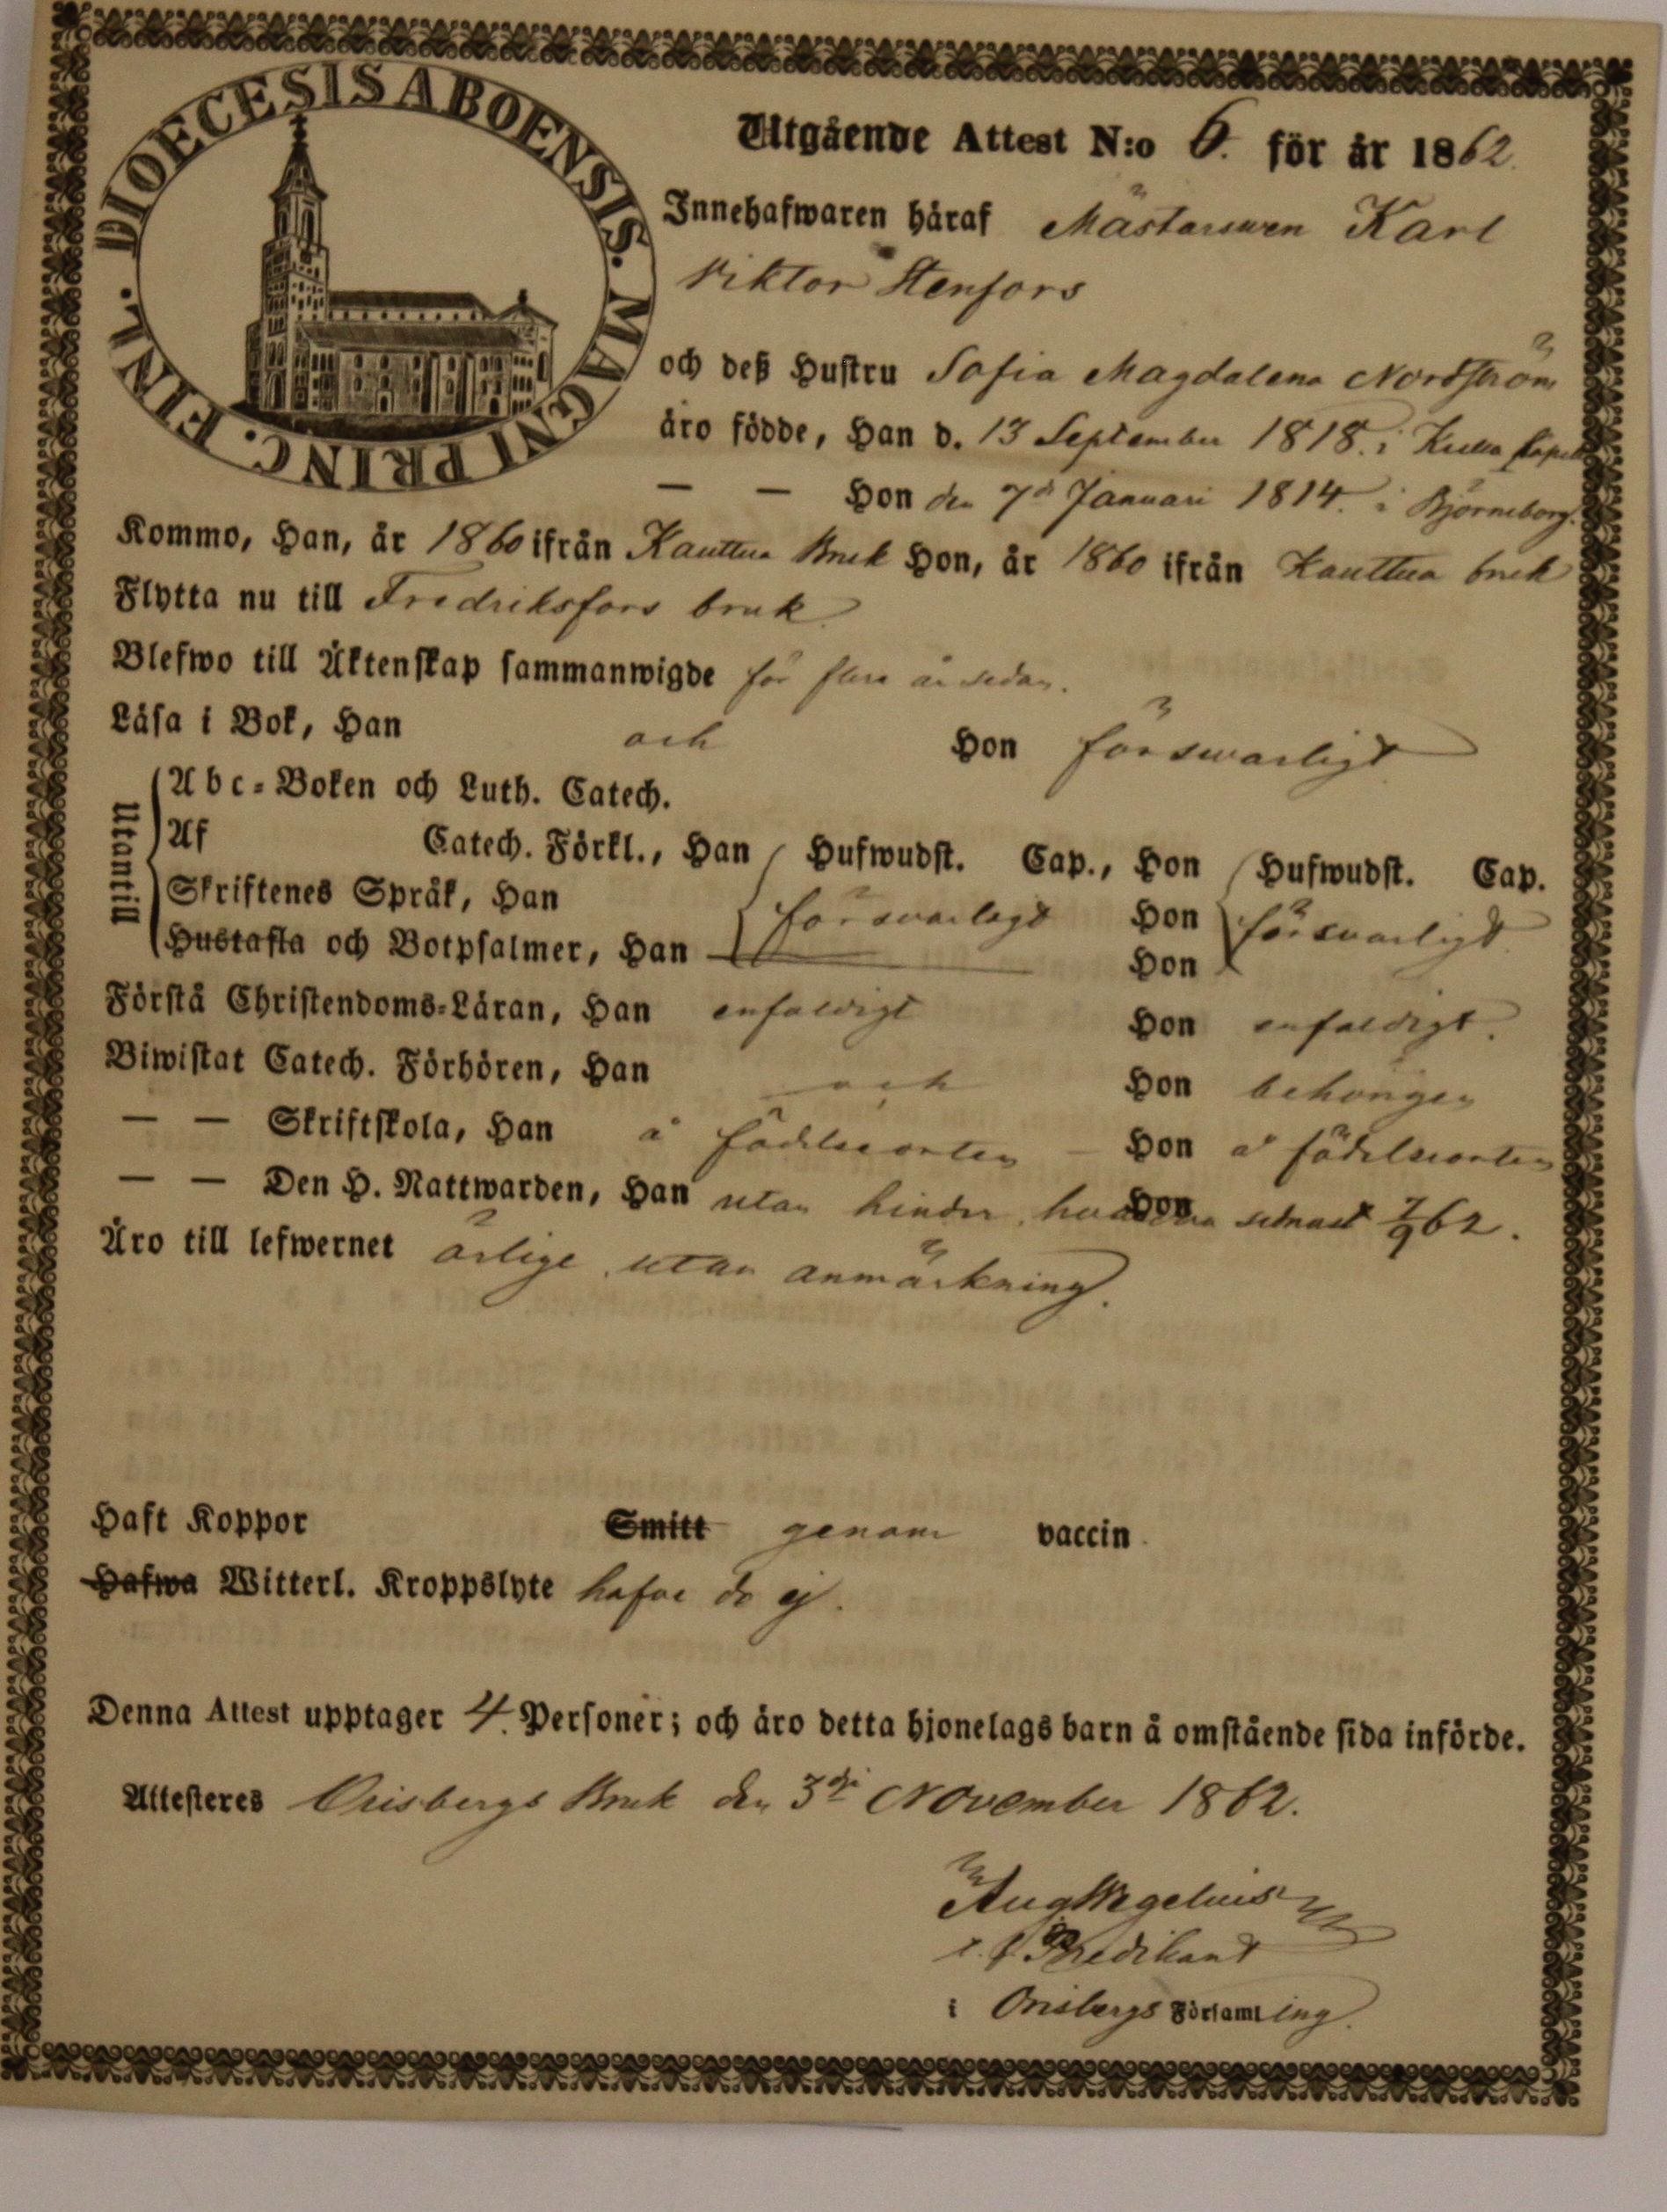 DIOECESIS ABOENSIS. MAGNI PRINC. FINL.
Utgående Attest N:o 6. för år 1862.
Innehafwaren häraf Mästarswen Karl
Viktor Stenfors
och deß Hustru Sofia Magdalena Nordström
äro födde, Han d. 13 September 1818. i
— — Hon den 7de Januari 1814. i Björneborg.
Kommo, Han, år 1860 ifrån Kauttua Bruk Hon, år 1860 ifrån Kauttua bruk
Flytta nu till Fredriksfors bruk.
Blefwo till Äktenskap sammanwigde för flera år sedan.
Läsa i Bok, Han och Hon förswarligt
Utantill
Abc-Boken och Luth. Catech.
Af Catech. Förkl., Han Hufwudst. Cap., Hon Hufwudst. Cap.
Skriftenes Språk, Han försvarligt Hon försvarligt
Hustafla och Botpsalmer, Han Hon
Förstå Christendoms-Läran, Han enfaldigt Hon enfaldigt.
Biwistat Catech. Förhören, Han och Hon behörigen
— — Skriftskola, Han å födelseorten — Hon å födelseorten
— — Den H. Nattwarden, Han utan hinder, Hon senast 7/9 62.
Äro till lefwernet ärlige, utan anmärkning.
Haft Koppor Smitt genom vaccin.
Hafwa Witterl. Kroppslyte hafva de ej.
Denna Attest upptager 4. Personer; och äro detta hjonelags barn å omstående sida införde.
Attesteres Orisbergs Bruk den 3dje November 1862.
Aug Wegelius
Predikant
i Orisbergs Församling.